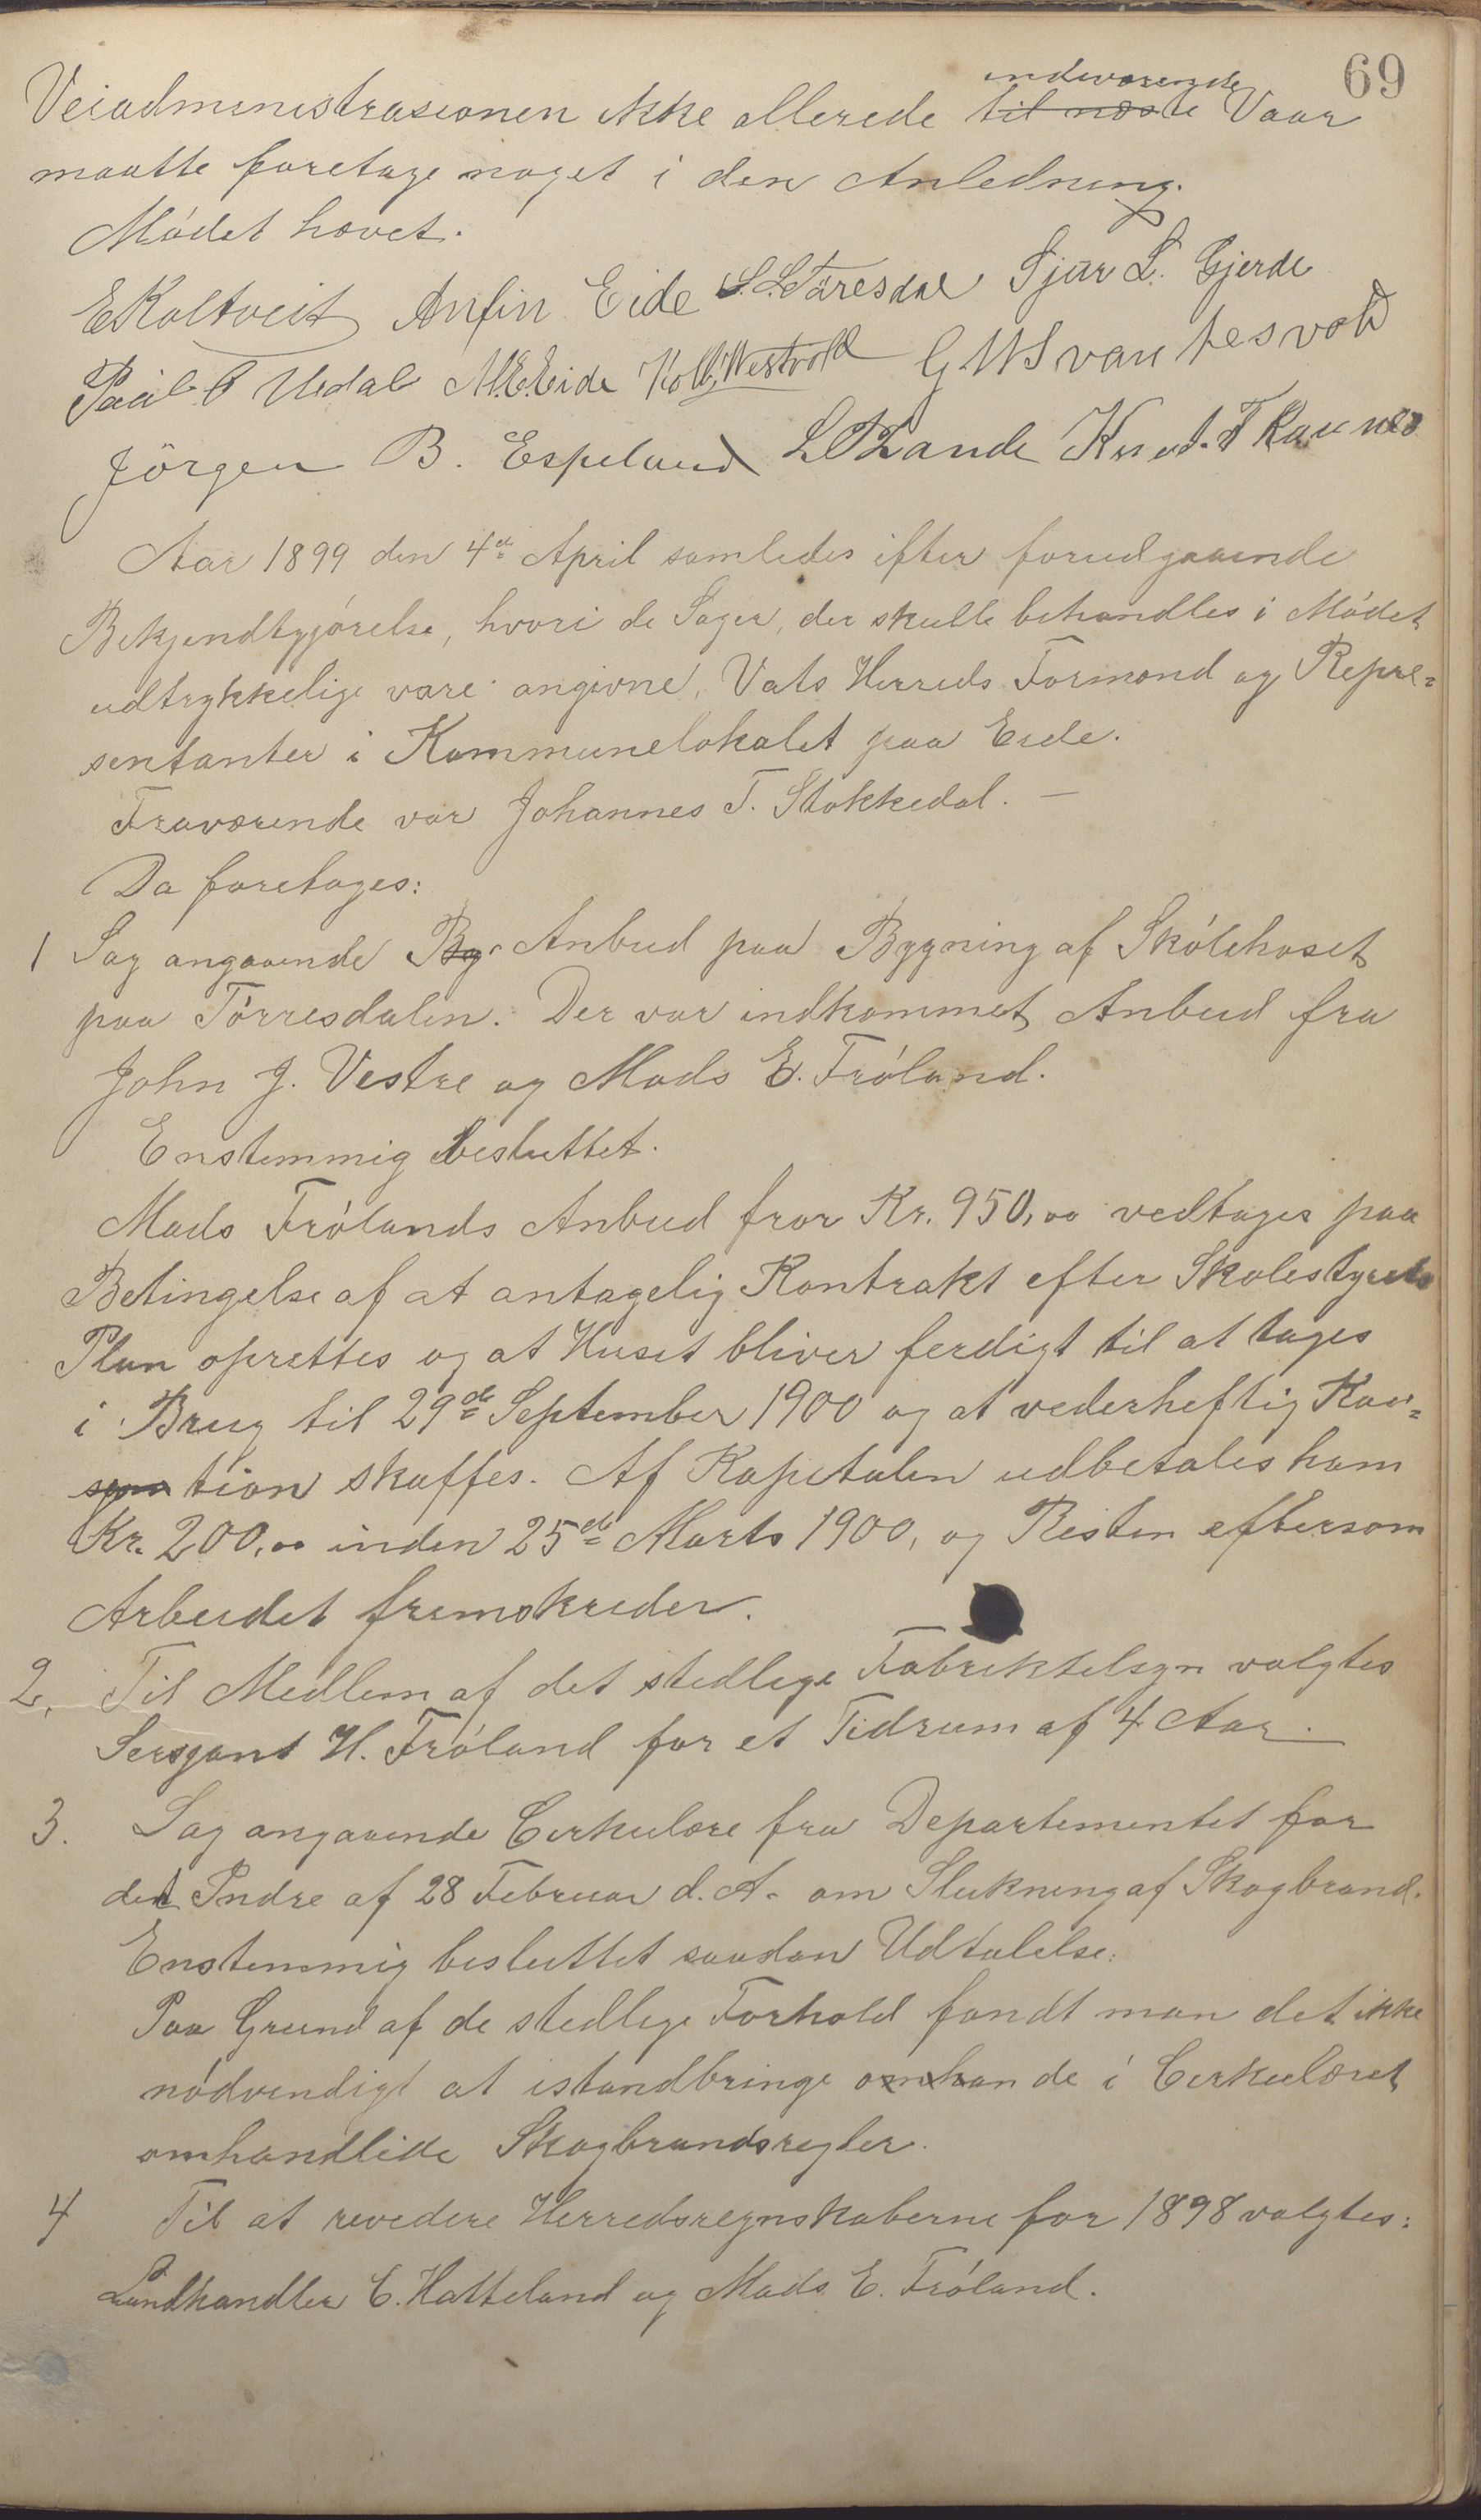 69
indeværende
Veiadministrasionen ikke allerede til næste Vaar
maatte foretage noget i den Anledning.
Mödet hævet.
E Koltveit Anfin Eide S. L. Faresdal Sjur L. Gjerde
Paul O Uedal M.E. Eide Kolb. Westvold G M Svantesvold
Jörgen B. Espeland L O Lande Knut. T Raunes
Aar 1899 den 4de April samledes ifter forudgaaende
Bekjendtgjörelse, hvori de Sager, der skulle behandles i Mödet
udtrykkelige vare angivne, Vats Herreds Formænd og Repre=
sentanter i Kommunelokalet paa Eide.
Fraværende var Johannes T. Stokkedal. —
Da foretages:
1 Sag angaaende By Anbud paa Bygning af Skólehuset
paa Törresdalen. Der var indkommet Anbud fra
John J. Vestre og Mads E. Fröland.
Enstemmig besluttet.
Mads Frölands Anbud fror Kr. 950,00 vedtages paa
Betingelse af at antagelig Kontrakt efter Skolestyrets
Plan oprettes og at Huset bliver ferdigt til at tages
i Brug til 29de September 1900 og at vederheftig Kau=
tion skaffes. Af Kapitalen udbetales ham
Kr. 200,00 inden 25de Marts 1900, og Resten eftersom
Arbeidet fremskrider.
2. Til Medlem af det stedlige Fabriktilsyn valgtes
Sersjant H. Fröland for et Tidrum af 4 Aar.
3. Sag angaaende Cirkulære fra Departementet for
det Indre af 28 Februar d. A. om Slukning af Skogbrand.
Enstemmig besluttet saadan Udtalelse:
Paa Grund af de stedlige Forhold fandt man det ikke
nödvendigt at istandbringe omhan de i Cirkulæret
omhandlede Skogbrandsregler.
4 Til at revedere Herredsregnskaberne for 1898 valgtes:
Landhandler C. Hatteland og Mads E. Fröland.